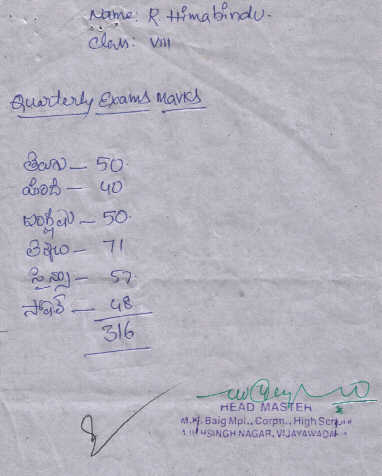 Name: R. Himabindu.
Class: VIII
Quarterly Exams Marks
తెలుగు - 50
హిందీ - 40
ఇంగ్లీషు - 50
71
సైన్సు - 57
సోషల్ - 48
316
HEAD MASTER
M.K. Baig Mpl., Corpn., High School
SINGH NAGAR, VIJAYAWADA